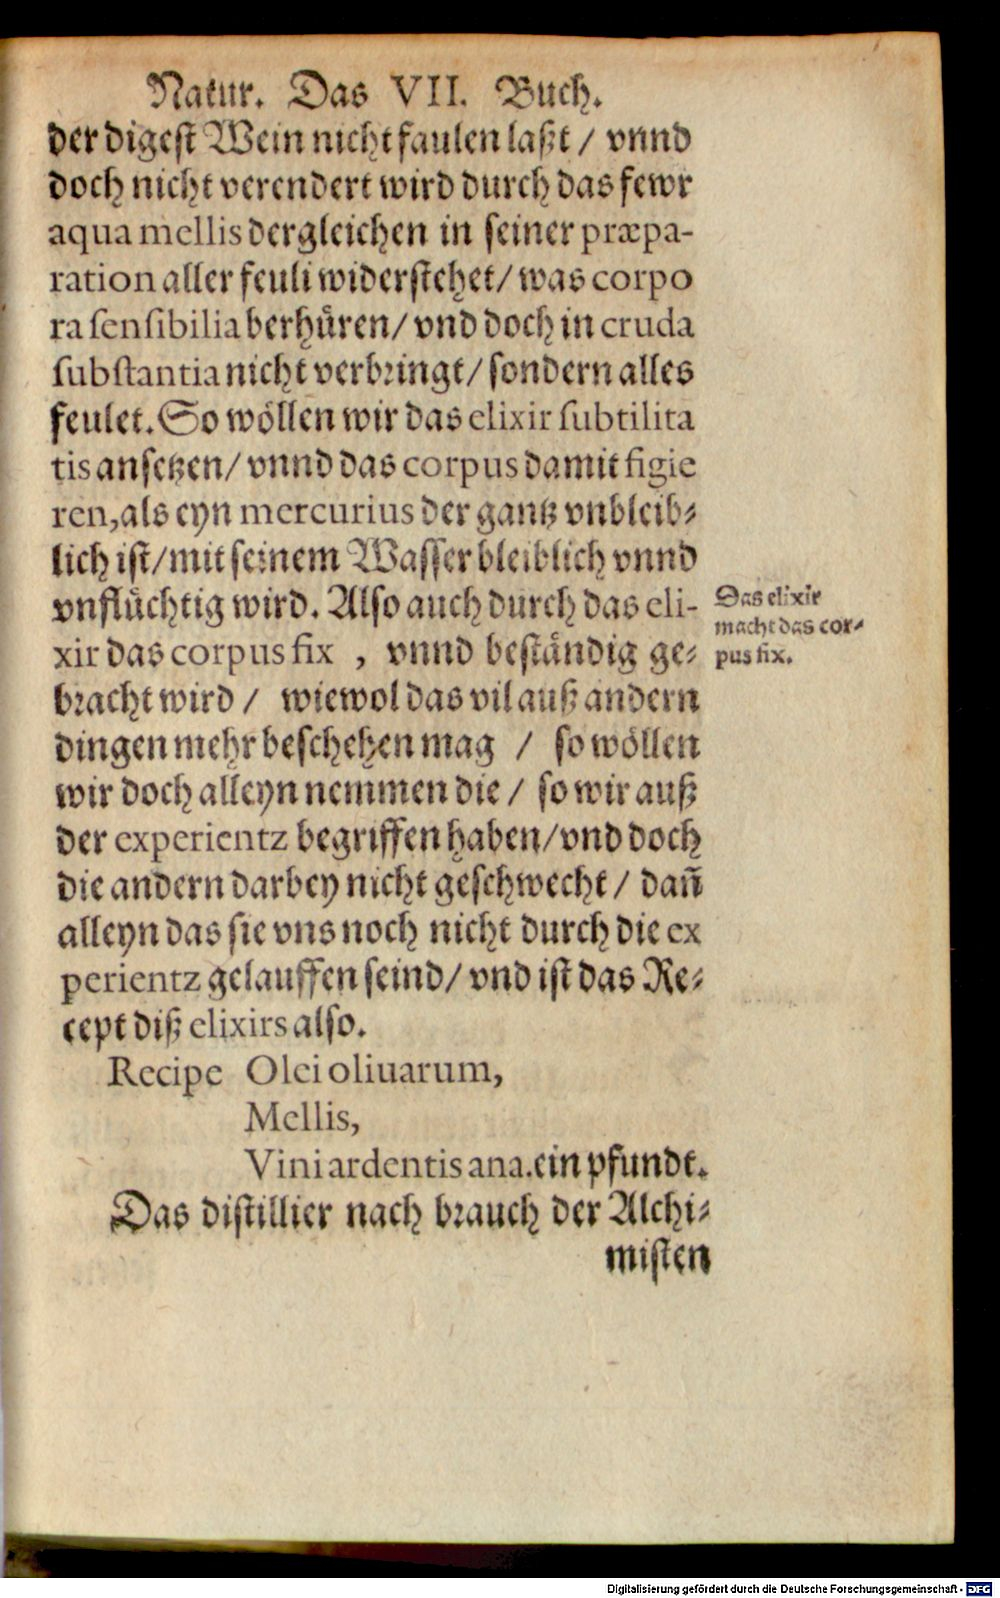 Natur. Das VII. Buch.
der digest Wein nicht faulen laßt / vnnd
doch nicht verendert wird durch das fewr
aqua mellis dergleichen in seiner præpa-
ration aller feuli widerstehet / was corpo
ra sensibilia berhüren / vnd doch in cruda
substantia nicht verbringt / sondern alles
feulet. So wöllen wir das elixir subtilita
tis ansetzen / vnnd das corpus damit figie
ren, als eyn mercurius der gantz vnbleib-
lich ist / mit seinem Wasser bleiblich vnnd
vnflüchtig wird. Also auch durch das eli-
xir das corpus fix , vnnd beständig ge-
bracht wird / wiewol das vil auß andern
dingen mehr beschehen mag / so wöllen
wir doch alleyn nemmen die / so wir auß
der experientz begriffen haben / vnd doch
die andern darbey nicht geschwecht / dañ
alleyn das sie vns noch nicht durch die ex
perientz gelauffen seind / vnd ist das Re-
cept diß elixirs also.
Recipe Olei oliuarum,
Mellis,
Vini ardentis ana. ein pfundt.
Das distillier nach brauch der Alchi-
misten
Das elixir
macht das cor-
pus fix.
Digitalisierung gefördert durch die Deutsche Forschungsgemeinschaft - DFG